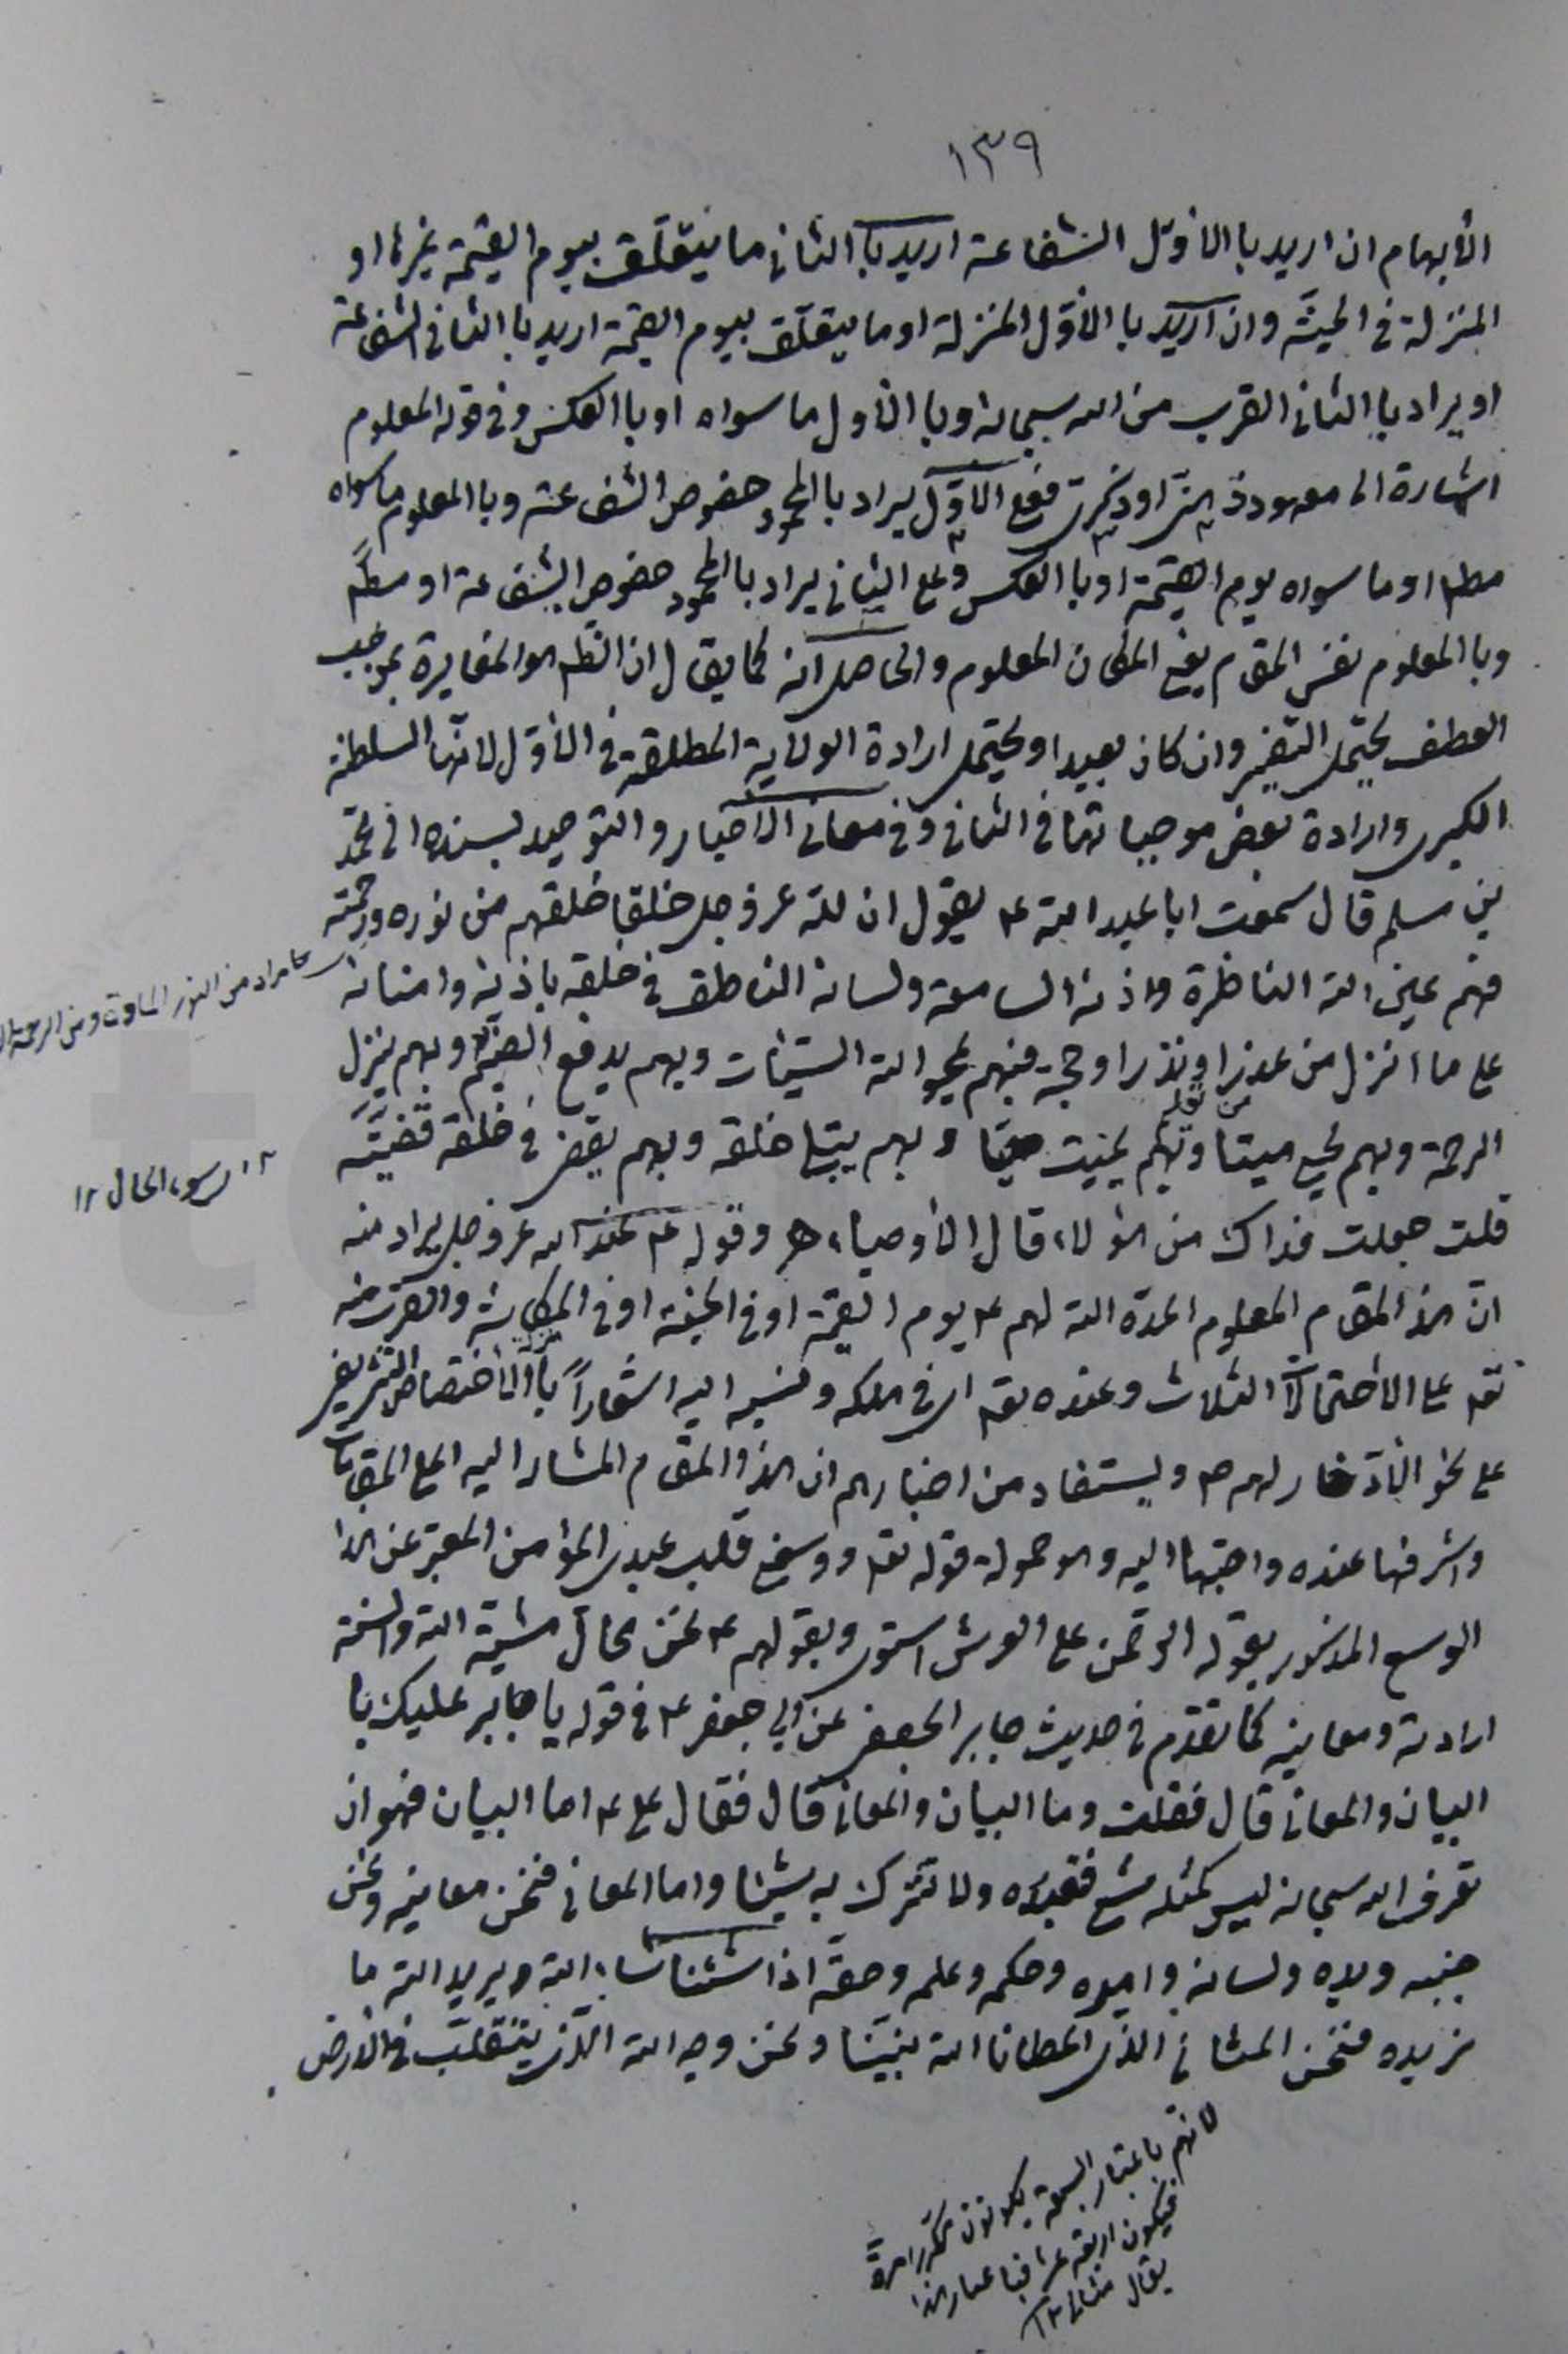 ١٣٩
الأبهام ان اريد با الأوّل الشفاعة اريد با الثاني ما يتعلّق بيوم القيمة غيرها او
المنزلة في الجنّة وان اريد با الأوّل المنزلة او ما يتعلّق بيوم القيمة اريد با الثاني الشفاعة
او يراد با الثاني القرب من الله سبحانه وبا الأول ما سواه او با العكس وفي قوله المعلوم
اشارة الى معهود ذهنيّ او ذكري فعلى الأوّل يراد با المحمود خصوص الشفاعة وبا المعلوم ما سواه
مطلقا او ما سواه يوم القيمة او با العكس وعلى الثاني يراد با المحمود خصوص الشفاعة او مطلقاً
وبا المعلوم نفس المقام يعني المكان المعلوم والحاصل انه كما يقال ان الظاهر هو المغايرة بموجب
العطف يحتمل التفسير وان كان بعيدا ويحتمل ارادة الولاية المطلقة في الأوّل لانّها السلطنة
الكبرى وارادة بعض موجباتها في الثاني وفي معاني الأخبار والتوحيد بسنده الى محمّد
بن مسلم قال سمعت ابا عبد الله ع يقول ان لله عز وجل خلقا خلقهم من نوره ورحمته
فهم عين الله الناظرة واذنه السامعة ولسانه الناطق في خلقه باذنه وامنائه
على ما انزل من عذر او نذر او حجة فبهم يمحو الله السيئات وبهم يدفع الضيم وبهم ينزل
الرحمة وبهم يحيي ميتا وبهم يميت حيّا وبهم يبتلي خلقه وبهم يقضي في خلقه قضيّته
قلت جعلت فداك من هؤلاء قال الأوصياء، وقوله ع عند الله عز وجل يراد منه
انّ هذا المقام المعلوم اعدّه الله لهم ع يوم القيمة او في الجنة او في المكانة والقرب منه
تعه على الأحتمالات الثلاث وعنده تعه اي في ملكه ونسبه اليه اشعاراً با الأختصاص التشريفي
على نحو الأدّخار لهم ع ويستفاد من اخبارهم ان هذا المقام المشار اليه اعلى المقامات
واشرفها عنده واحبّها اليه وهو حمولة قوله تعه ووسعني قلب عبدي المؤمن المعبّر عن هذا
الوسع المذكور بقوله الرحمن على العرش استوى وبقولهم ع نحن محالّ مشيّة الله والسنة
ارادته ومعانيه كما تقدّم في حديث جابر الجعفي عن ابي جعفر ع في قوله يا جابر عليك با
البيان والمعاني قال فقلت وما البيان والمعاني قال فقال علي ع اما البيان فهو ان
تعرف الله سبحانه ليس كمثله شيء فتعبده ولا تشرك به شيئا واما المعاني فنحن معانيه ونحن
جنبه ويده ولسانه وامره وحكمه وعلمه وحقّه اذا شئنا شاء الله ويريد الله ما
نريده فنحن المثاني الذي اعطانا الله نبيّنا ونحن وجه الله الّذي يتقلّب في الأرض
المراد من النور المادة ومن الرحمة
الحال ١٢
لانهم باعتبار السبعة يكونون مكرّرا مرّة
فيكون اربعة عشر فباعتبار هذا
يقال مثاني ١٢